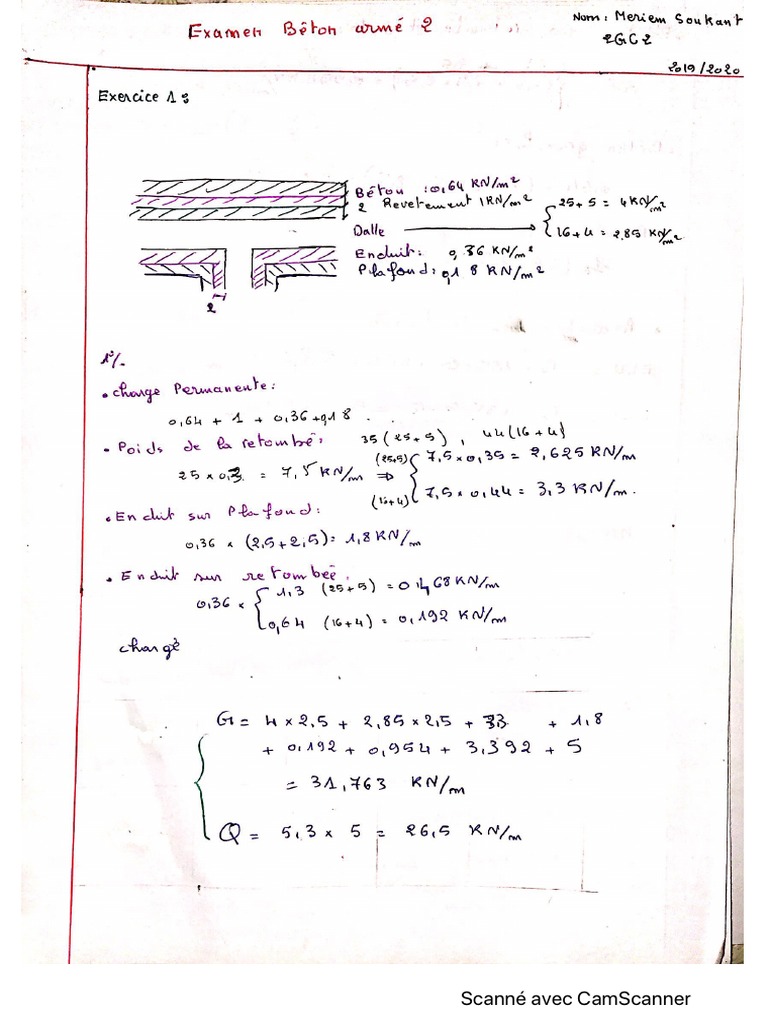 Examen Béton armé 2
Nom: Meriem Soukant
2GC2
2019/2020
Exercice 1:
Béton : 0,64 KN/m²
2 Revetement 1KN/m²
Dalle
25+5 = 4KN/m²
16+4 = 2,85 KN/m²
Enduit: 0,36 KN/m²
Plafond: 0,18 KN/m²
2
1°/.
• charge Permanente:
0,64 + 1 + 0,36 + 0,18 .
• Poids de la retombé: 35 (25+5) , 44 (16+4)
25 x 0,3 = 7,5 KN/m ⇒ (25+5) 7,5 x 0,35 = 2,625 KN/m
(16+4) 7,5 x 0,44 = 3,3 KN/m.
• Enduit sur Plafond:
0,36 x (2,5+2,5) = 1,8 KN/m
• Enduit sur retombée.
0,36 x 1,3 (25+5) = 0,468 KN/m
0,64 (16+4) = 0,192 KN/m
chargé
G = 4 x 2,5 + 2,85 x 2,5 + 33 + 1,8
+ 0,192 + 0,954 + 3,392 + 5
= 31,763 KN/m
Q = 5,3 x 5 = 26,5 KN/m
Scanné avec CamScanner